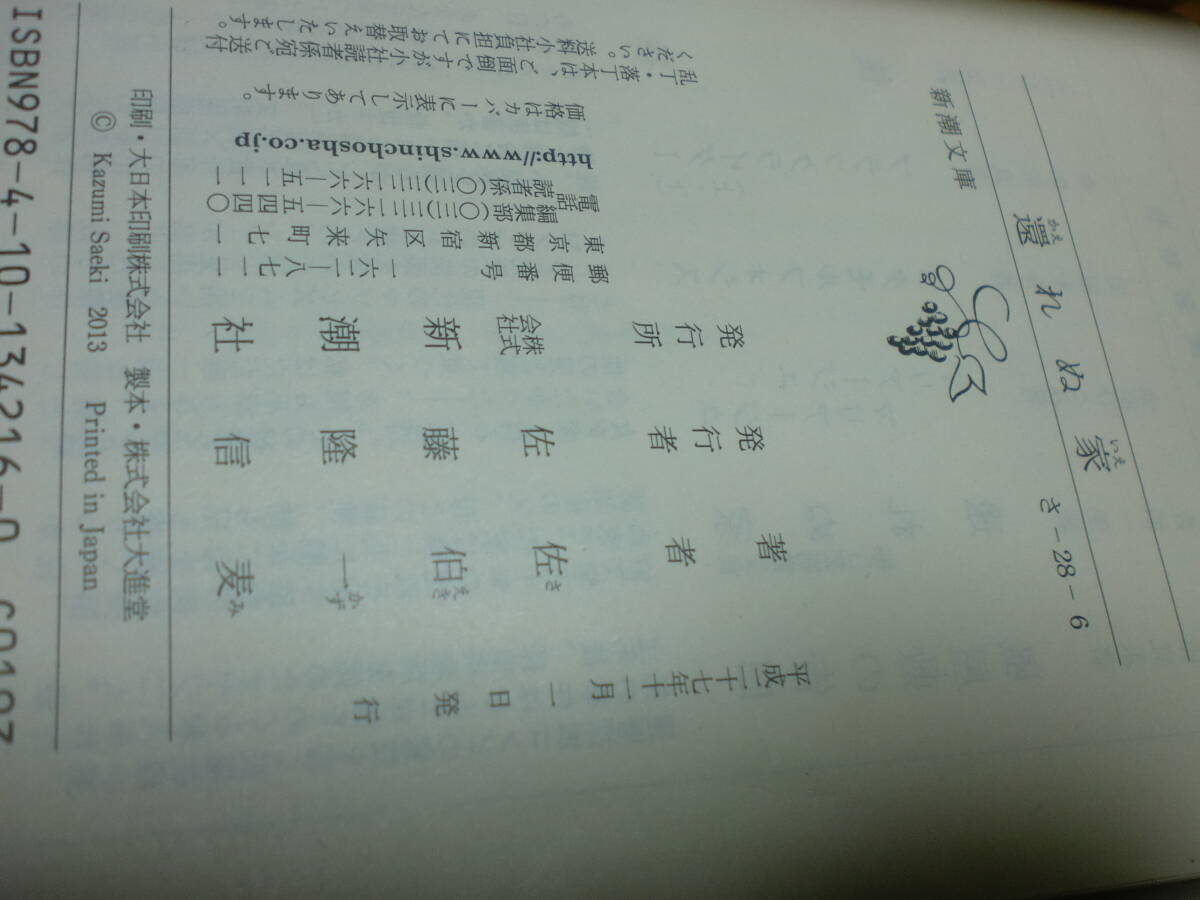 還れぬ家
かえ
いえ
新潮文庫
さ-28-6
平成二十七年十一月一日発行
著者 佐伯一麦
さえきかずみ
発行者 佐藤隆信
発行所 株式会社 新潮社
郵便番号 一六二―八七一一
東京都新宿区矢来町七一
電話 編集部(〇三)三二六六―五四四〇
読者係(〇三)三二六六―五一一一
http://www.shinchosha.co.jp
価格はカバーに表示してあります。
乱丁・落丁本は、ご面倒ですが小社読者係宛ご送付
ください。送料小社負担にてお取替えいたします。
印刷・大日本印刷株式会社 製本・株式会社大進堂
© Kazumi Saeki 2013 Printed in Japan
ISBN978-4-10-134216-0 C0193